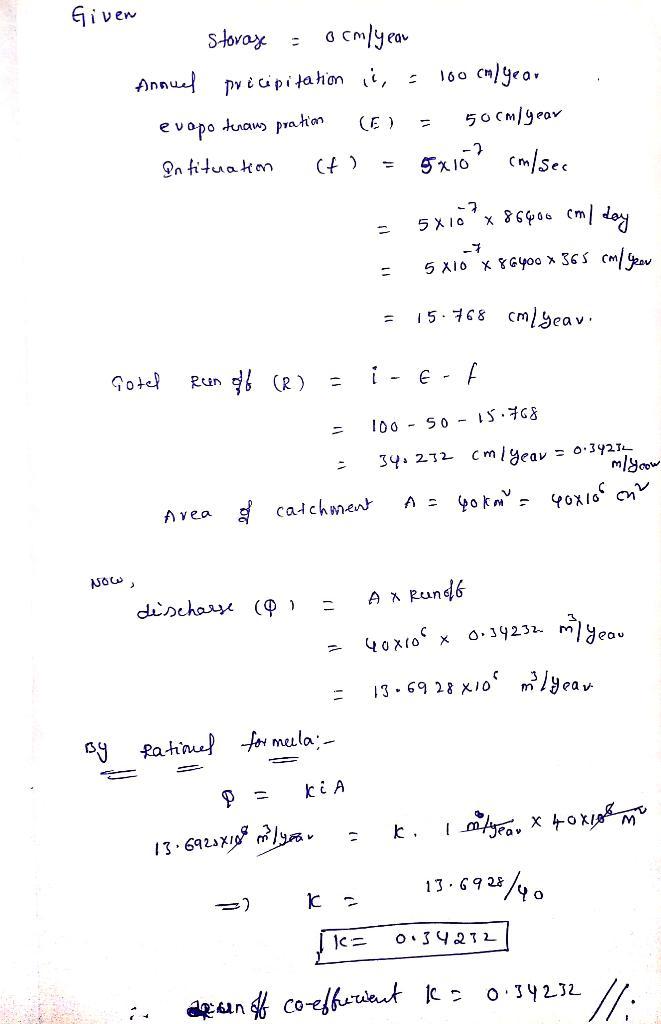 Given
Storage = 0 cm/year
Annuel pricipitation i, = 100 cm/year
evapo transpration (E) = 50 cm/year
Infituation (f) = 5x10^-7 cm/sec
= 5x10^-7 x 86400 cm/day
= 5x10^-7 x 86400 x 365 cm/year
= 15.768 cm/year.
Totel Run off (R) = i - E - f
= 100 - 50 - 15.768
= 34.232 cm/year = 0.34232 m/year
Area of catchment A = 40km² = 40x10^6 m²
Now,
discharge (Q) = A x Runoff
= 40x10^6 x 0.34232 m³/year
= 13.6928x10^6 m³/year
By Rationel formula:-
Q = KiA
13.6928x10^6 m³/year = K. 1 m/year x 40x10^6 m²
=) K = 13.6928/40
K = 0.34232
∴ run off co-effurient K = 0.34232 //.